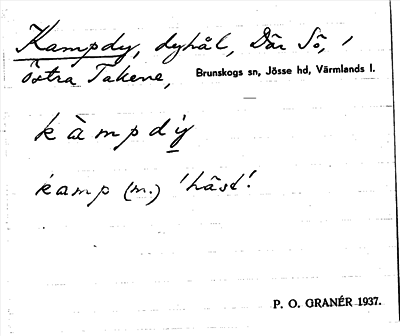 Kampdy, dyhål, Där Sö, i
Östra Takene, Brunskogs sn, Jösse hd, Värmlands l.
kàmpdy
kamp (m.) 'häst'.
P. O. GRANÉR 1937.